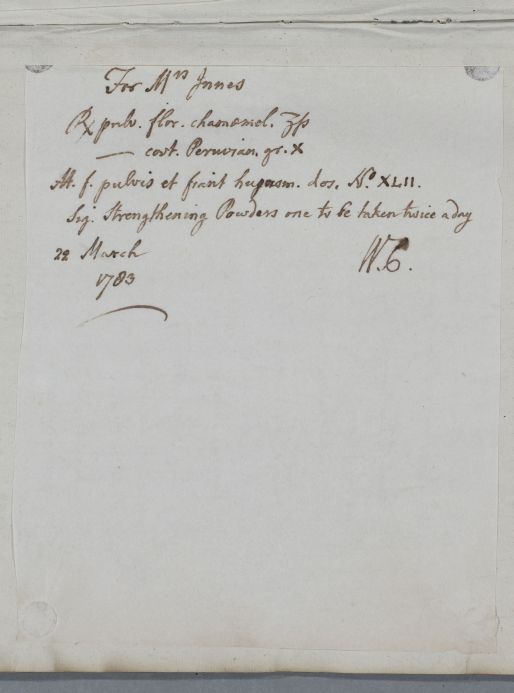 For Mrs Innes
℞ pulv. flor. chamæmel. ʒſs
— cort. Peruvian. gr. X
M. f. pulvis et fiant hujusm. dos. No. XLII.
Sig. Strengthening Powders one to be taken twice a day
22 March
W.C.
1783